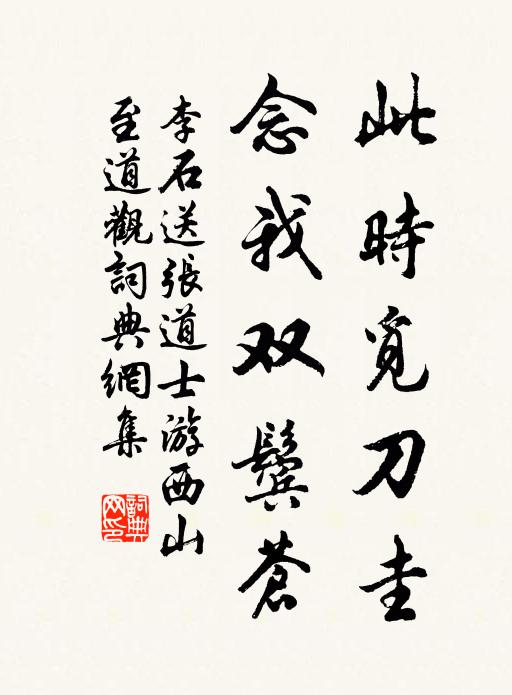 此時覓刀圭
念我双鬢蒼
李石送張道士游西山
至道觀詞典網集
詞典網印